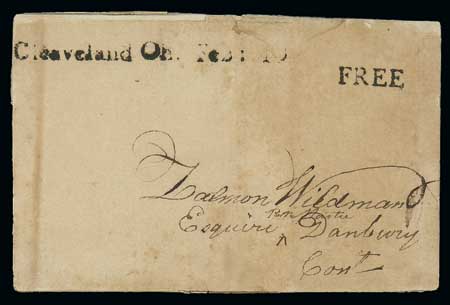 Cleaveland Oh. Feb:
FREE
Zalmon Wildman
Esquire
Danbury
Cont